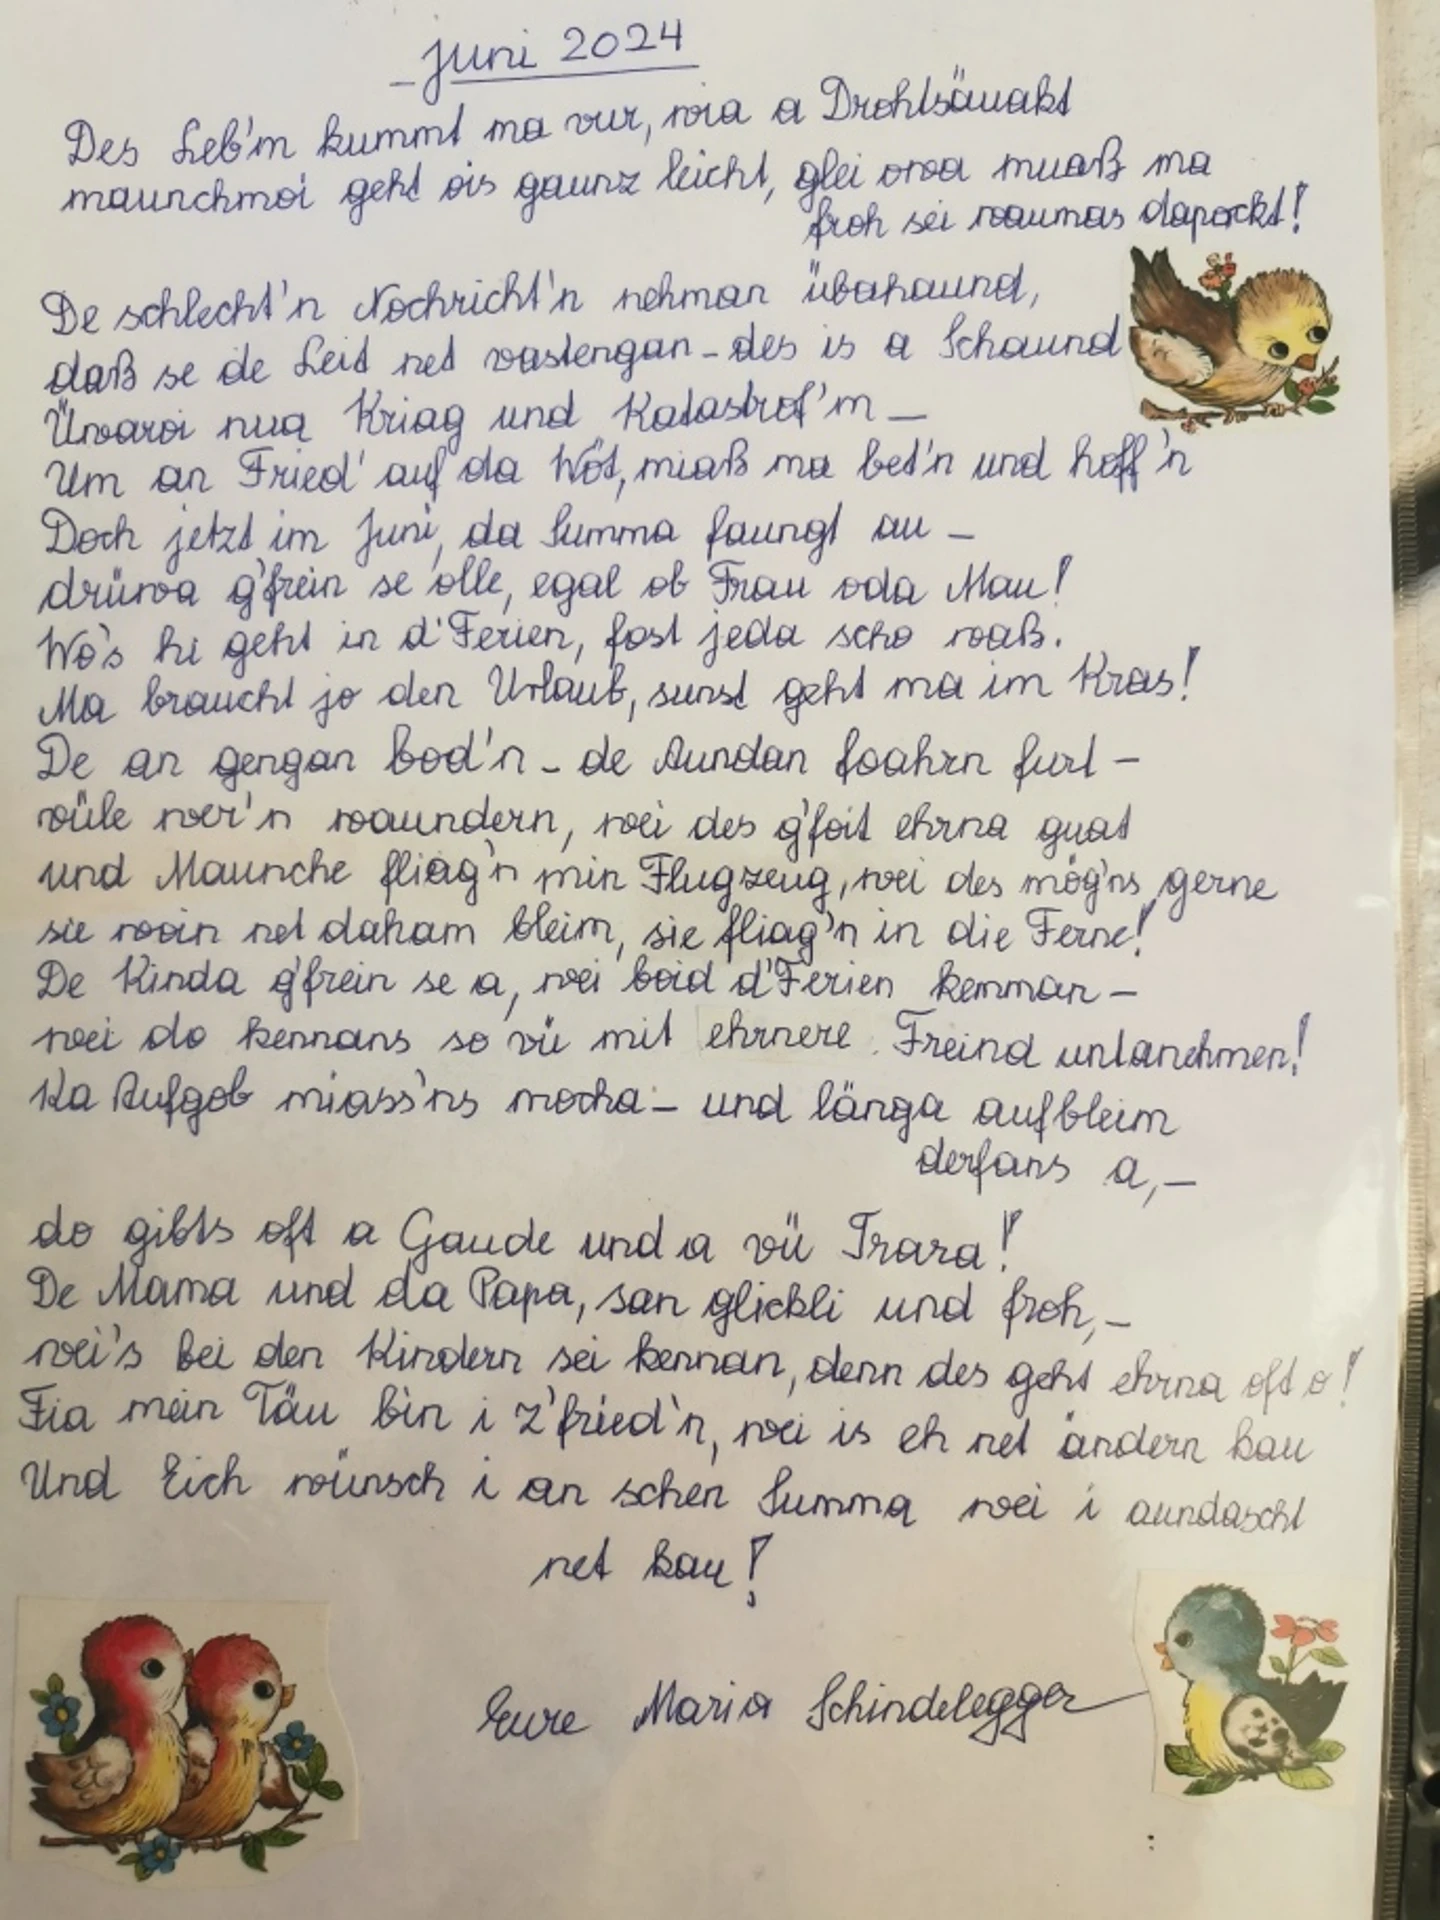 Juni 2024
Des Leb'm kummt ma vur, wia a Drohtsäuakt
maunchmoi geht ois gaunz leicht, glei owa muaß ma
froh sei waumas dapockt!
De schlecht'n Nochricht'n nehman übahaund,
daß se de Leit net vastengan - des is a Schaund
Üwaroi nua Kriag und Katastrof'm -
Um an Fried' auf da Wöt, miaß ma bet'n und hoff'n
Doch jetzt im Juni, da Summa faungt au -
drüwa g'frein se olle, egal ob Frau oda Mau!
Wo's hi geht in d'Ferien, fost jeda scho waß.
Ma braucht jo den Urlaub, sunst geht ma im Kras!
De an gengan bod'n - de Aundan foahrn furt -
vüle wer'n waundern, wei des g'foit ehrna guat
und Maunche fliag'n min Flugzeug, wei des mög'ns gerne
sie woin net daham bleim, sie fliag'n in die Ferne!
De Kinda g'frein se a, wei boid d'Ferien kemman -
wei do kennans so vü mit ehrnere Freind untanehmen!
Ka Aufgob miass'ns mocha - und länga aufbleim
derfans a, -
do gibts oft a Gaude und a vü Trara!
De Mama und da Papa, san glickli und froh, -
wei's bei den Kindern sei kennan, denn des geht ehrna oft o!
Fia mein Täu bin i z'fried'n, wei is eh net ändern kau
Und Eich wünsch i an schen Summa wei i aundascht
net kau!
Eure Maria Schindelegger